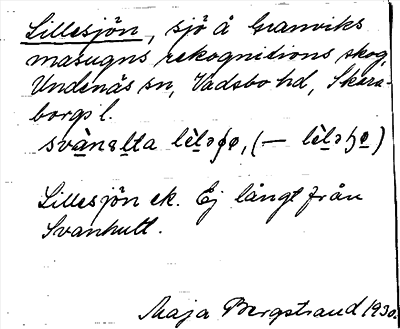 Lillesjön, sjö å Granviks
masugns rekognitions skog,
Undenäs sn, Vadsbo hd, Skara-
borgs l.
Lillesjön ek. Ej långt från
Svanhult.
Maja Bergstrand 1930.